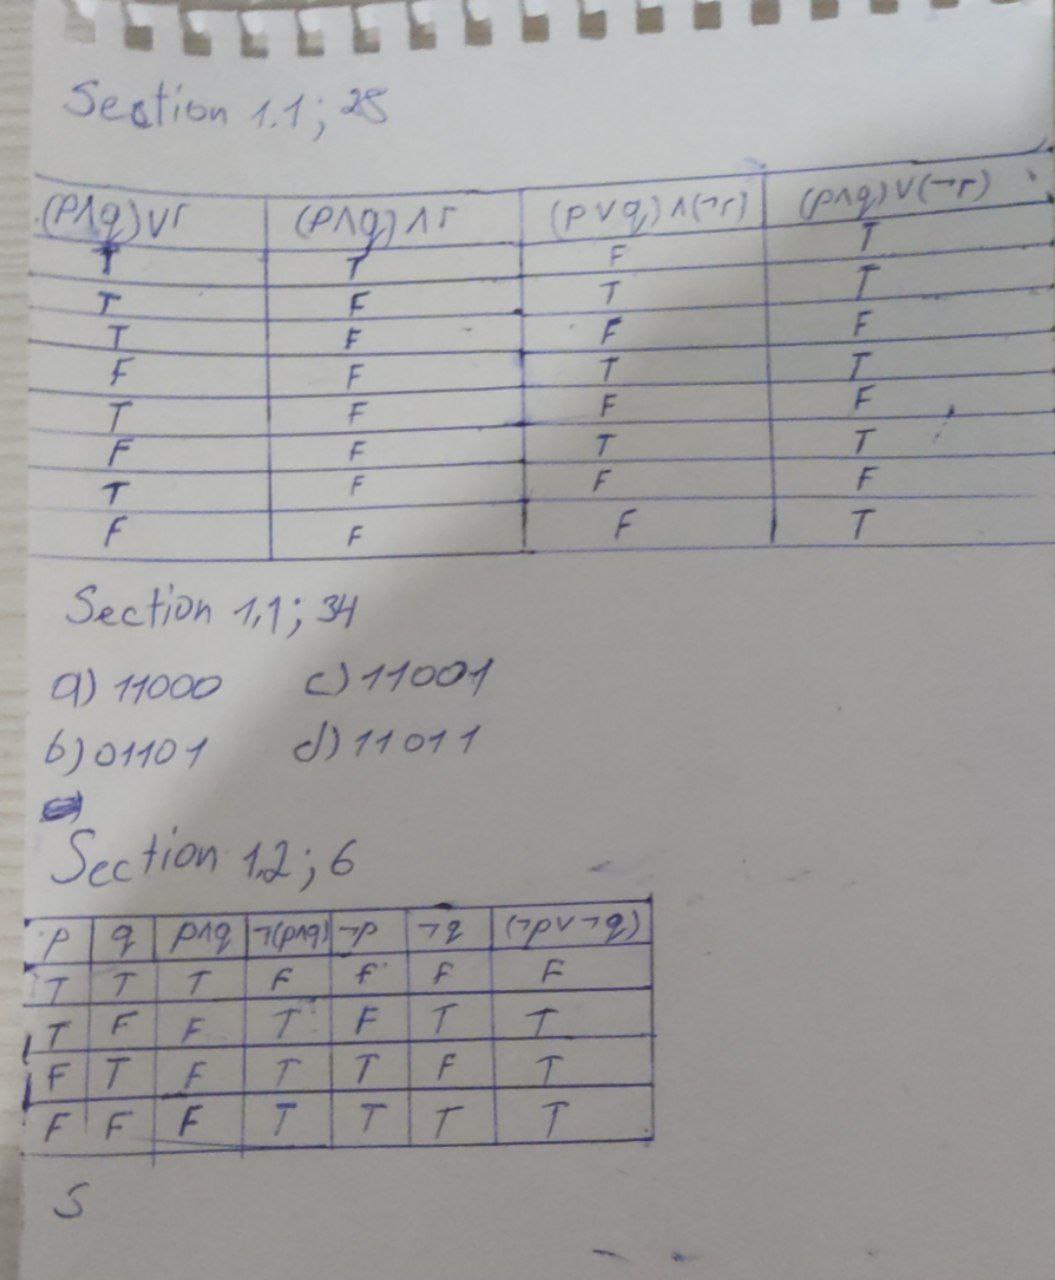 Section 1.1; 28
(p∧q)∨r (p∧q)∧r (p∨q)∧(¬r) (p∧q)∨(¬r)
T T F T
T F T T
T F F F
F F T T
T F F F
F F T T
T F F F
F F F T
Section 1,1; 34
a) 11000 c) 11001
b) 01101 d) 11011
Section 1,2; 6
p q p∧q ¬(p∧q) ¬p ¬q (¬p∨¬q)
T T T F F F F
T F F T F T T
F T F T T F T
F F F T T T T
S